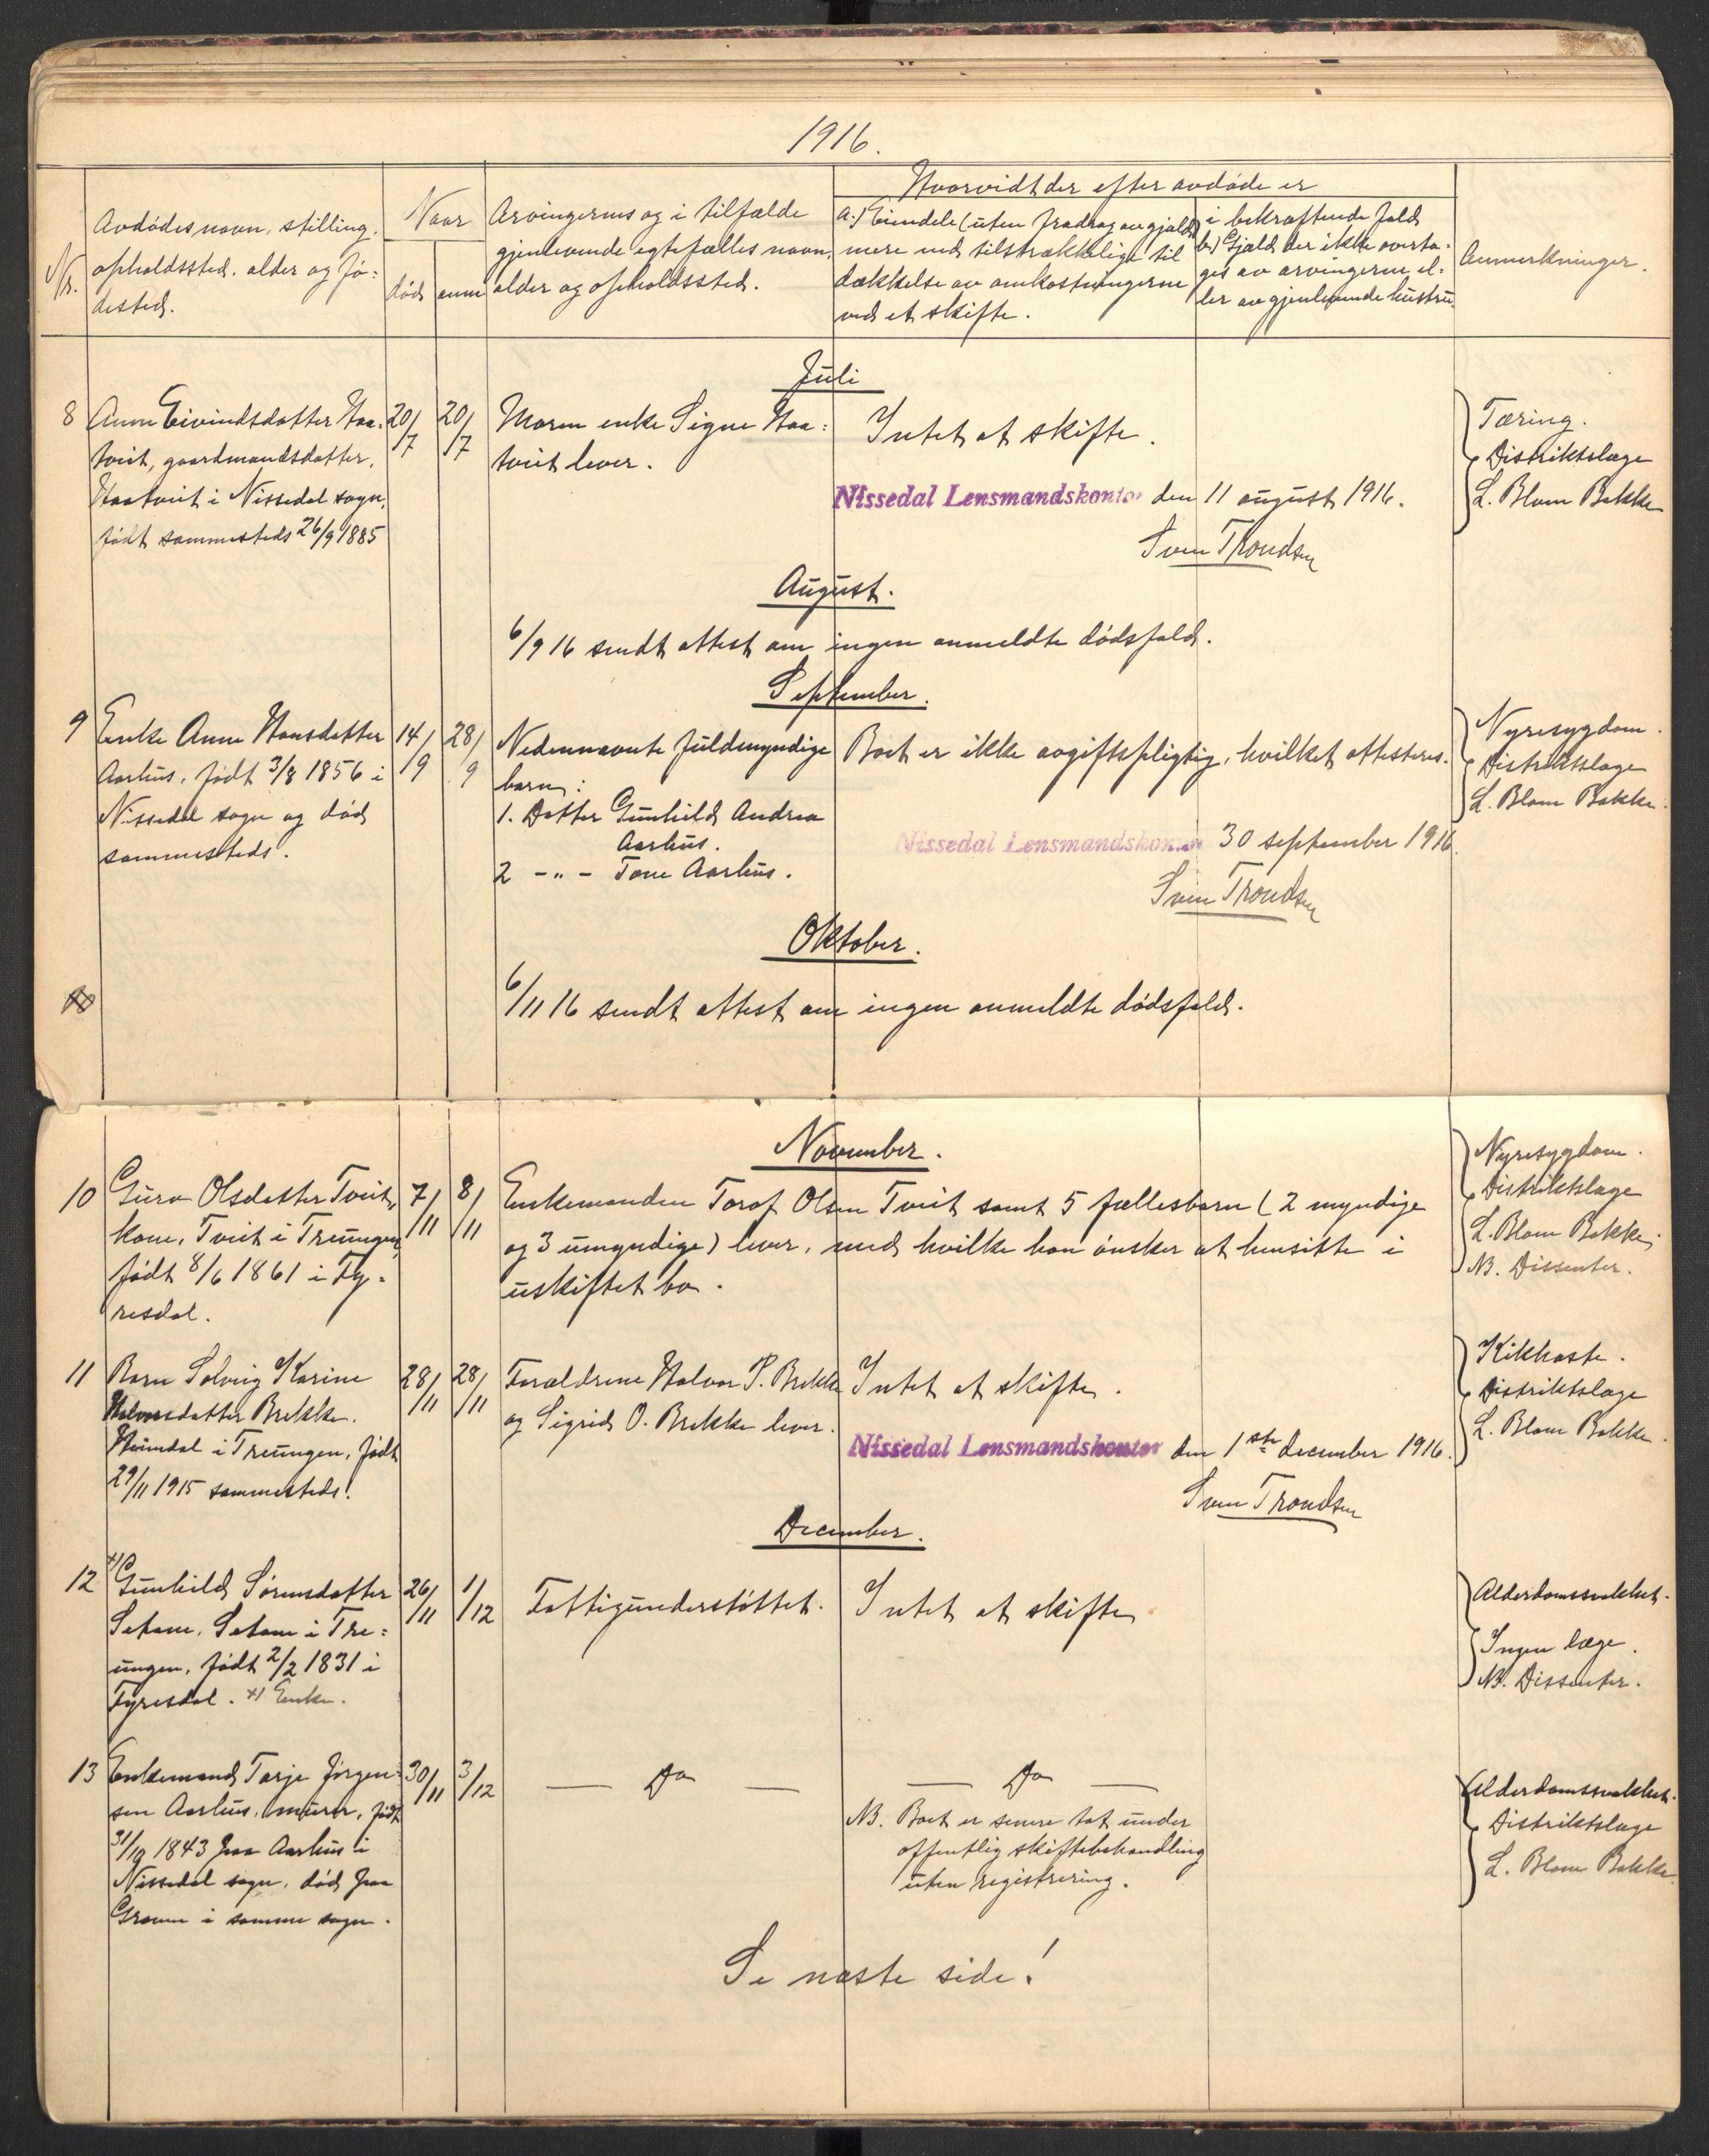 1916.
Nr.
Avdødes navn, stilling,
opholdssted, alder og fø=
dested.
Naar
død
anm
Arvingernes og i tilfælde
gjenlevende egtefælles navn,
alder og opholdssted.
Hvorvidt der efter avdøde er
a.) Eiendele (uten fradrag av gjæld)
mere end tilstrækkelige til
dækkelse av omkostningerne
ved et skifte.
i bekræftende fald
b.) Gjæld der ikke overta=
ges av arvingerne, el=
ler av gjenlevende hustru.
Anmerkninger.
Juli
8 Anne Eivindsdatter Haa=
tveit, gaardmandsdatter,
Haatveit i Nissedal sogn,
født sammesteds 26/9 1885
20/7
20/7
Moren enke Signe Haa=
tveit lever.
Intet at skifte.
Nissedal Lensmandskontor den 11 august 1916.
Sven Trondsen
Tæring.
Distriktslæge
L. Blom Bakke
August.
6/9 16 sendt attest om ingen anmeldte dødsfald.
September.
9 Enke Anne Hansdatter
Aarhus, født 3/8 1856 i
Nissedal sogn og død
sammesteds.
14/9
28/9
Nedennævnte fuldmyndige
barn:
1. Datter Gunhild Andrea
Aarhus.
2 -"- Tone Aarhus.
Boet er ikke avgiftspligtig, hvilket attesteres.
Nissedal Lensmandskontor 30 september 1916.
Sven Trondsen
Nyresygdom.
Distriktslæge
L. Blom Bakke.
Oktober.
6/11 16 sendt attest om ingen anmeldte dødsfald.
November.
10 Guro Olsdatter Tveit,
kone, Tveit i Treungen,
født 8/6 1861 i Ty=
resdal.
7/11
8/11
Enkemanden Torof Olsen Tveit samt 5 fællesbarn (2 myndige
og 3 umyndige) lever, med hvilke han ønsker at hensitte i
uskiftet bo.
Nyresygdom.
Distriktslæge
L. Blom Bakke.
NB. Dissenter.
11 Barn Solveig Karine
Halvorsdatter Brekke.
Heimdal i Treungen, født
29/11 1915 sammesteds.
28/11
28/11
Forældrene Halvor P. Brekke
og Sigrid O. Brekke lever.
Intet at skifte.
Nissedal Lensmandskontor den 1ste december 1916.
Sven Trondsen
Kikhoste.
Distriktslæge
L. Blom Bakke.
December.
12 x) Gunhild Sørensdatter
Setane, Setane i Tre=
ungen, født 2/2 1831 i
Tyresdal. x) Enke.
26/11
1/12
Fattigunderstøttet.
Intet at skifte
Alderdomssvakhet.
Ingen læge.
NB. Dissenter.
13 Enkemand Tarje Jørgen=
sen Aarhus, murer, født
31/10 1843 paa Aarhus i
Nissedal sogn, død paa
i samme sogn.
30/11
3/12
— Do —
— Do —
NB. Boet er senere tat under
offentlig skiftebehandling
uten registrering.
Alderdomssvakhet.
Distriktslæge
L. Blom Bakke.
Se næste side!